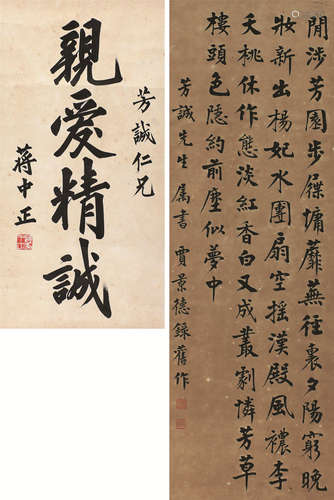 芳誠仁兄
親愛精誠
蔣中正
閒涉芳園步屧慵蘼蕪往裏夕陽窮晚
妝新出楊妃水團扇空搖漢殿風襛李
夭桃休作態淡紅香白又成叢劇憐芳草
樓頭色隱約前塵似夢中
芳誠先生属書 賈景德錄舊作